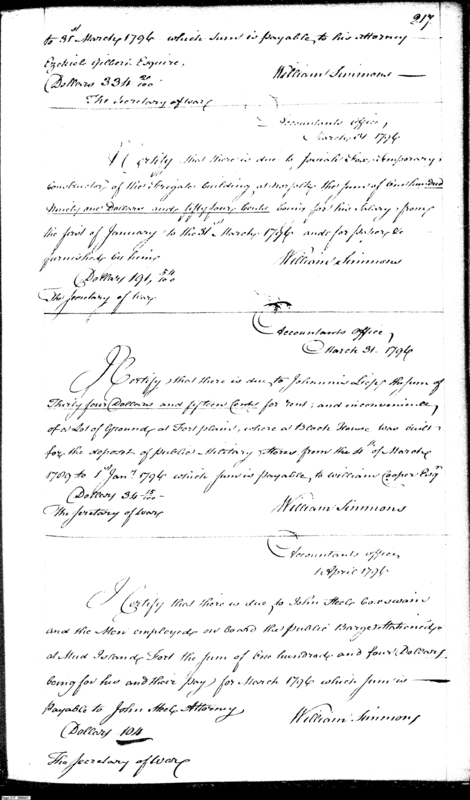 217
to 31st March 1796 which sum is payable to his Attorney
Ezekiel Gilbert Esquire.
Dollars 334 /100 William Simmons
The Secretary of War
Accountants office,
March 31 1796
I Certify that there is due to Josiah Fox temporary
Constructor of the Frigate building at Norfolk the sum of One hundred
Ninety one Dollars and fifty four Cents being for his Salary from
the first of January to the 31st March 1796 and for paper &c
furnished by him William Simmons
Dollars 191, 54/100
The Secretary of War
Accountants office,
March 31. 1796
I Certify that there is due to Johannis the sum of
Thirty four Dollars and fifteen Cents for rent, and inconvenience,
of a Lot of Ground at Fort plain, where a Block House was built
for the deposit of public Military Stores from the 4th of March
1789 to 1st Jany 1796 which sum is payable to William Cooper Esqr
Dollars 34 15/100 William Simmons
The Secretary of War
Accountants office
1 April 1796
I Certify that there is due to John Coxswain
and the Men employed on board the public Barge Stationed
at Mud Island Fort the sum of One hundred and four Dollars
being for his and their pay for March 1796 which sum is
Payable to John Attorney
Dollars 104 William Simmons
The Secretary of War